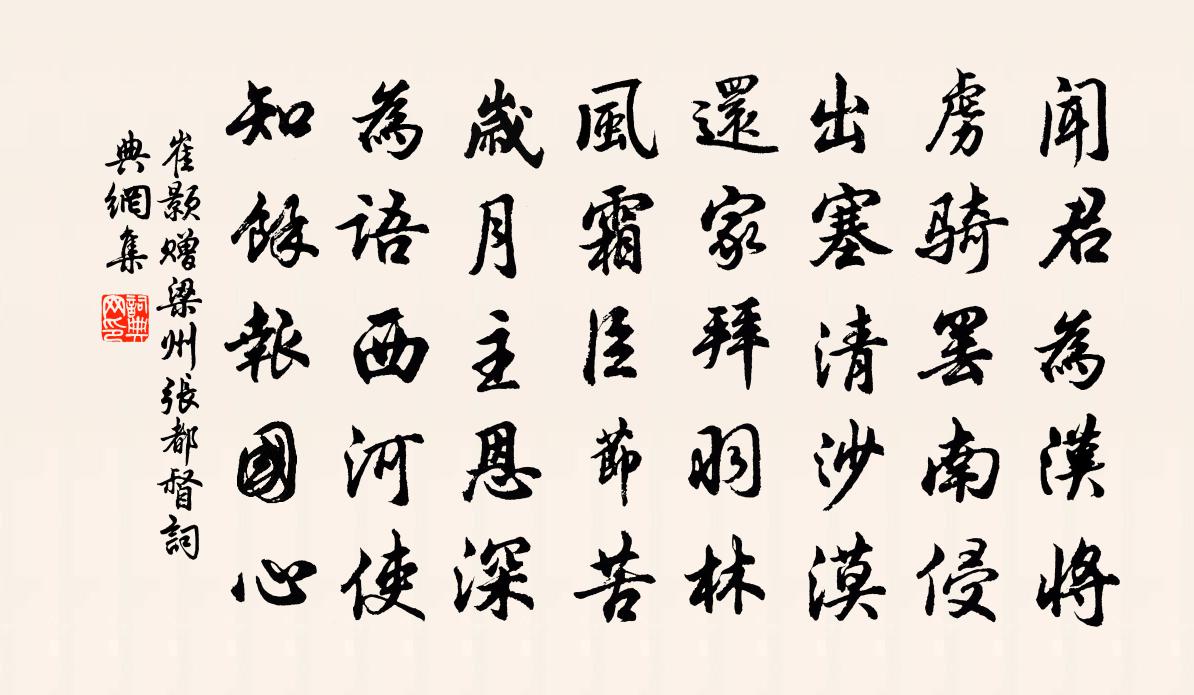 聞君為漢將
虜騎罷南侵
出塞清沙漠
還家拜羽林
風霜臣節苦
歲月主恩深
為語西河使
知餘報國心
崔顥贈梁州張都督詞
典網集
詞典
网印